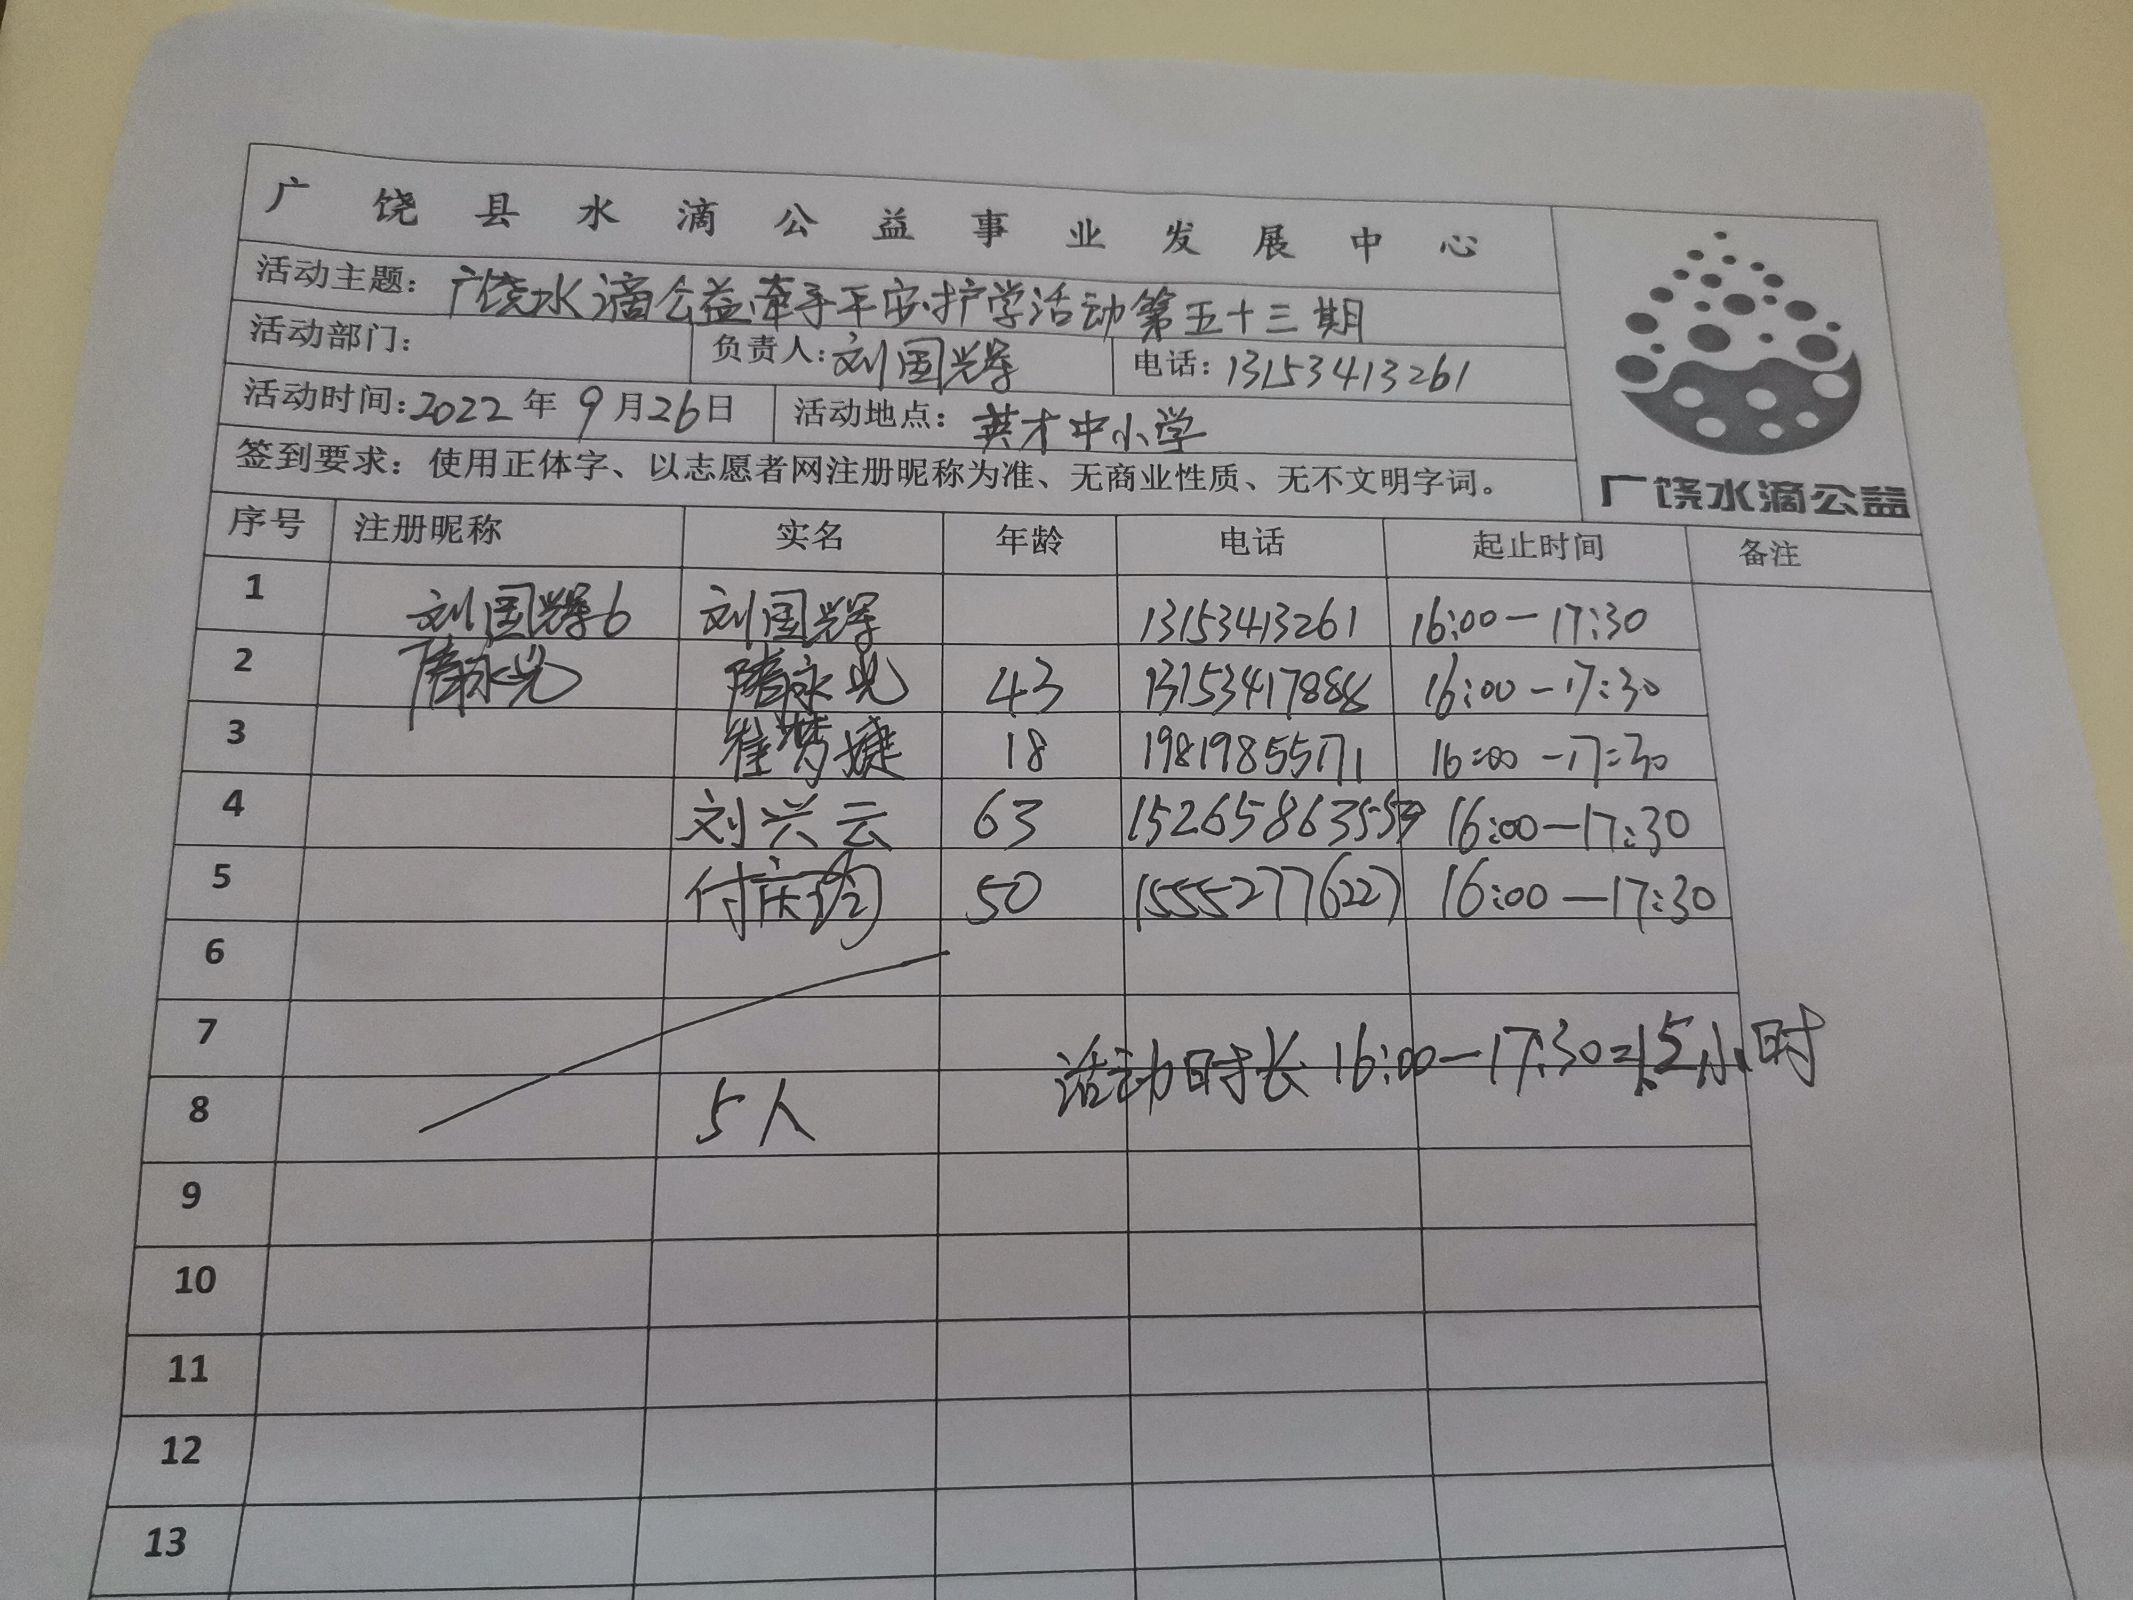 广饶县水滴公益事业发展中心
活动主题：广饶水滴公益牵手平安·护学活动第五十三期
活动部门： 负责人：刘国辉 电话：13153413261
活动时间：2022年9月26日 活动地点：英才中小学
签到要求：使用正体字、以志愿者网注册昵称为准、无商业性质、无不文明字词。
广饶水滴公益
序号 注册昵称 实名 年龄 电话 起止时间 备注
1 刘国辉6 刘国辉 13153413261 16:00-17:30
2 隋永光 隋永光 43 13153417888 16:00-17:30
3 崔梦婕 18 19819855171 16:00-17:30
4 刘兴云 63 16:00-17:30
5 付庆 50 15552776227 16:00-17:30
6
7 活动时长16:00-17:30=1.5小时
8 5人
9
10
11
12
13